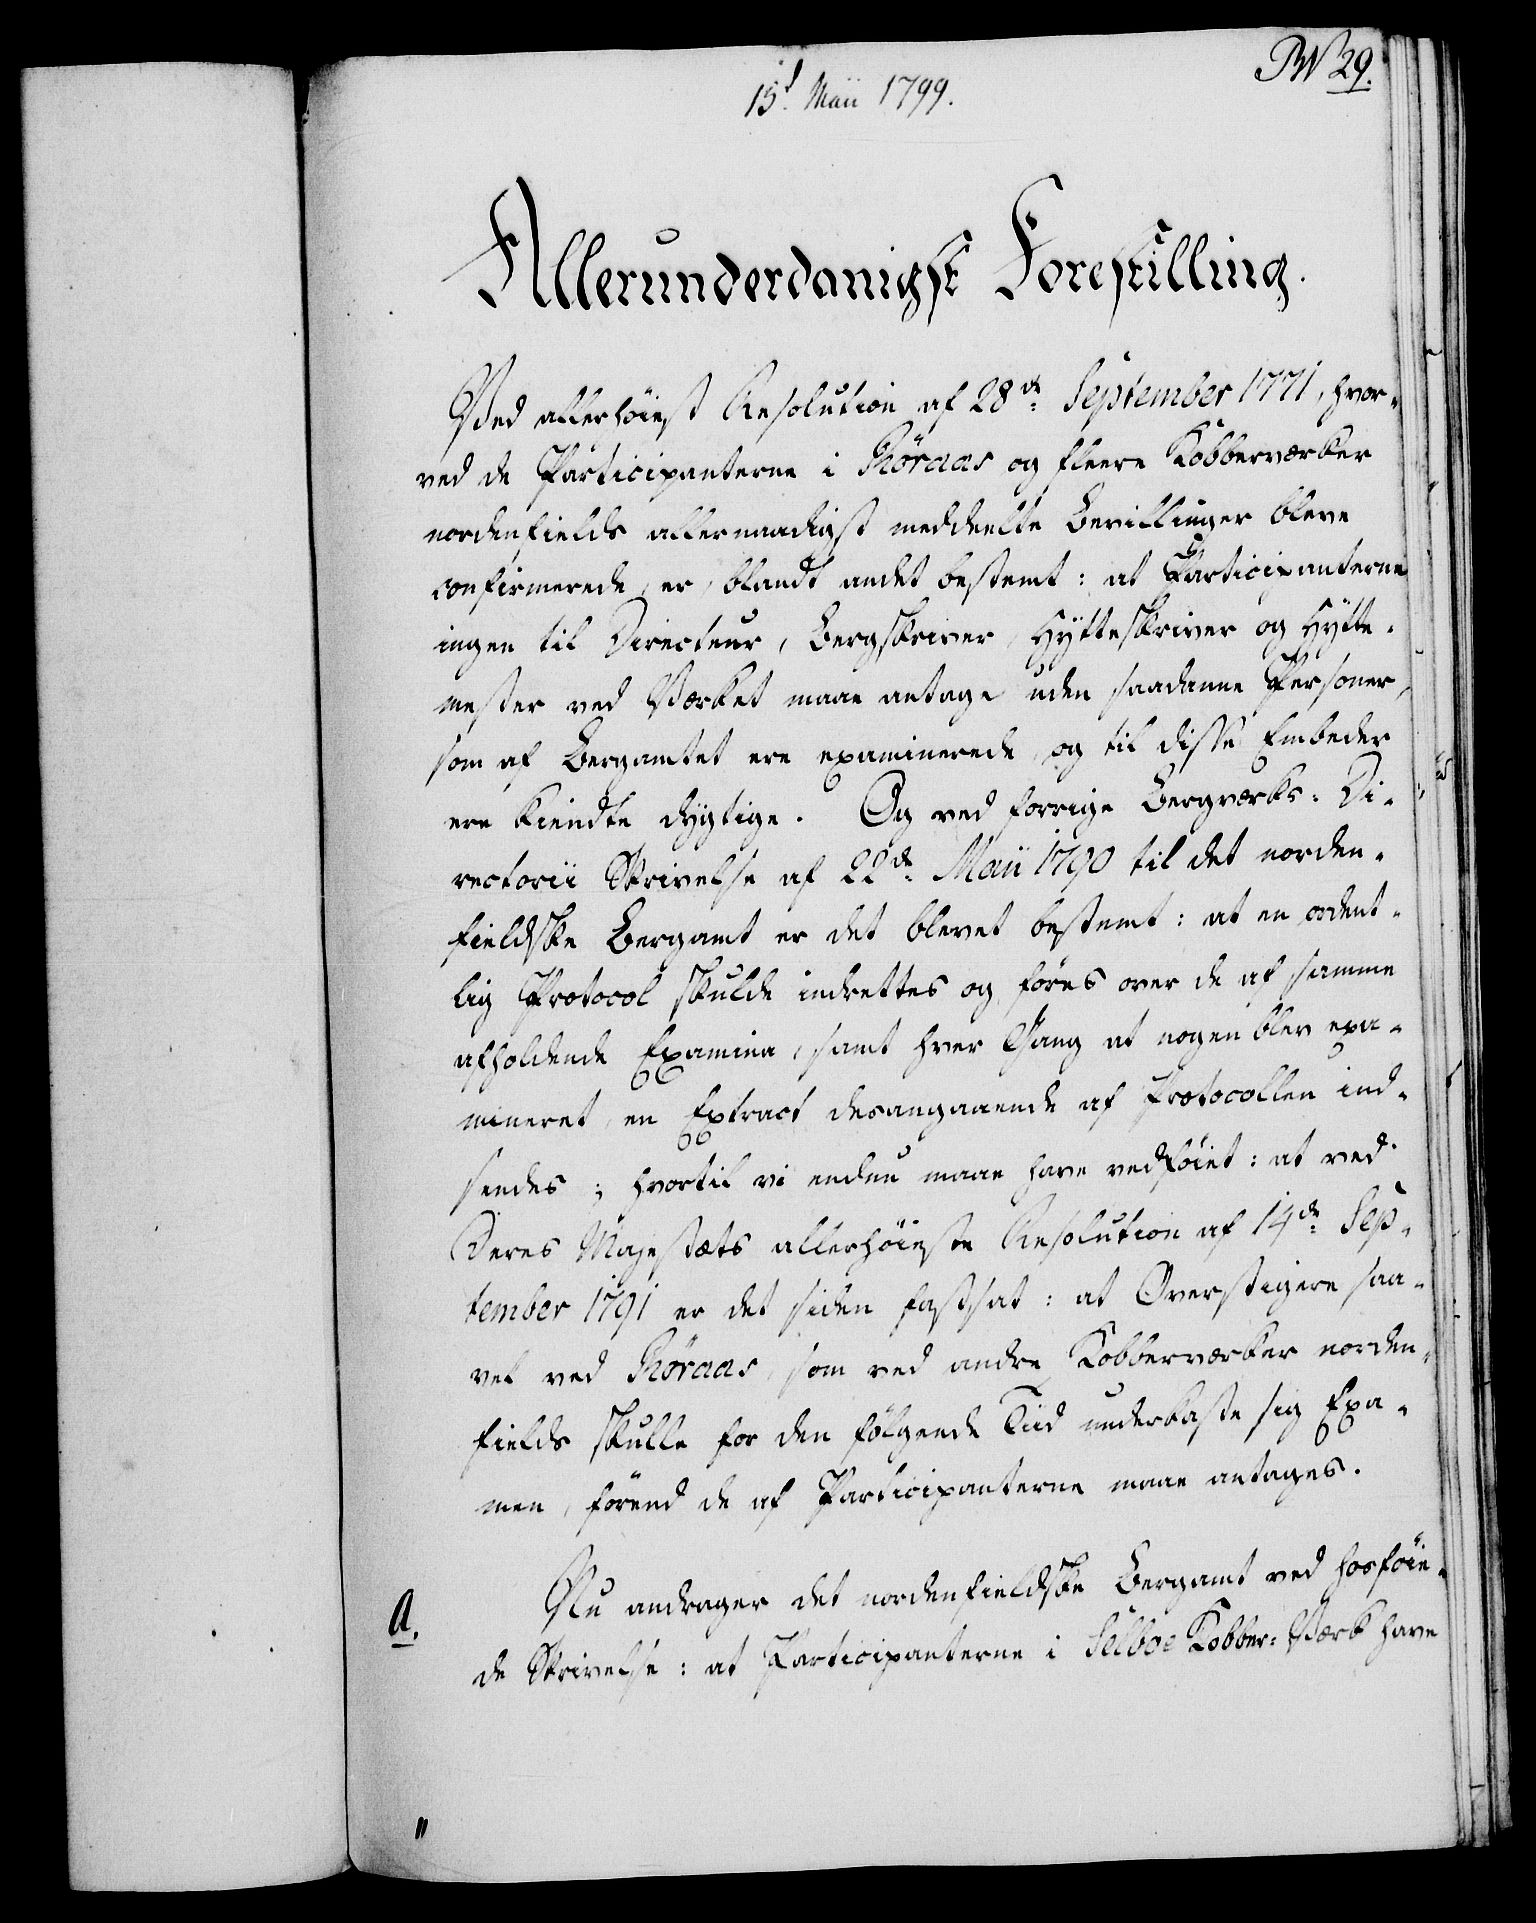 15d Maii 1799.
No 29.
Allerunderdanigst Forestilling.
Ved allerhøiest Resolution af 28de September 1771, hvor-
ved de Participanterne i Røraas og fleere Kobberværker
nordenfields allernaadigst meddeelte Bevillinger bleve
confirmerede, er, blandt andet bestemt: at Participanterne
ingen til Directeur, Bergskriver, Hytteskriver og Hytte-
mester ved Værket maae antage uden saadanne Personer,
som af Bergamtet ere examinerede og til disse Embeder
ere kiendte dygtige. Og ved forrige Bergværks-Di-
rectorii Skrivelse af 22de Maii 1790 til det norden-
fieldske Bergamt er det blevet bestemt: at en ordent-
lig Protocol skulde indrettes og føres over de af samme
afholdende Examina, samt hver Gang at nogen blev exa-
mineret, en Extract desangaaende af Protocollen ind-
sendes; hvortil vi endnu maae have vedføiet: at ved
Deres Majestæts allerhøieste Resolution af 14de Sep-
tember 1791 er det siden fastsat: at Overstigere saa-
vel ved Røraas, som ved andre Kobberværker norden-
fields skulle for den følgende Tiid underkaste sig Exa-
men, førend de af Participanterne maae antages.
Nu andrager det nordenfieldske Bergamt ved hosføie-
A.
de Skrivelse: at Participanterne i Selboe Kobber-Værk have
"